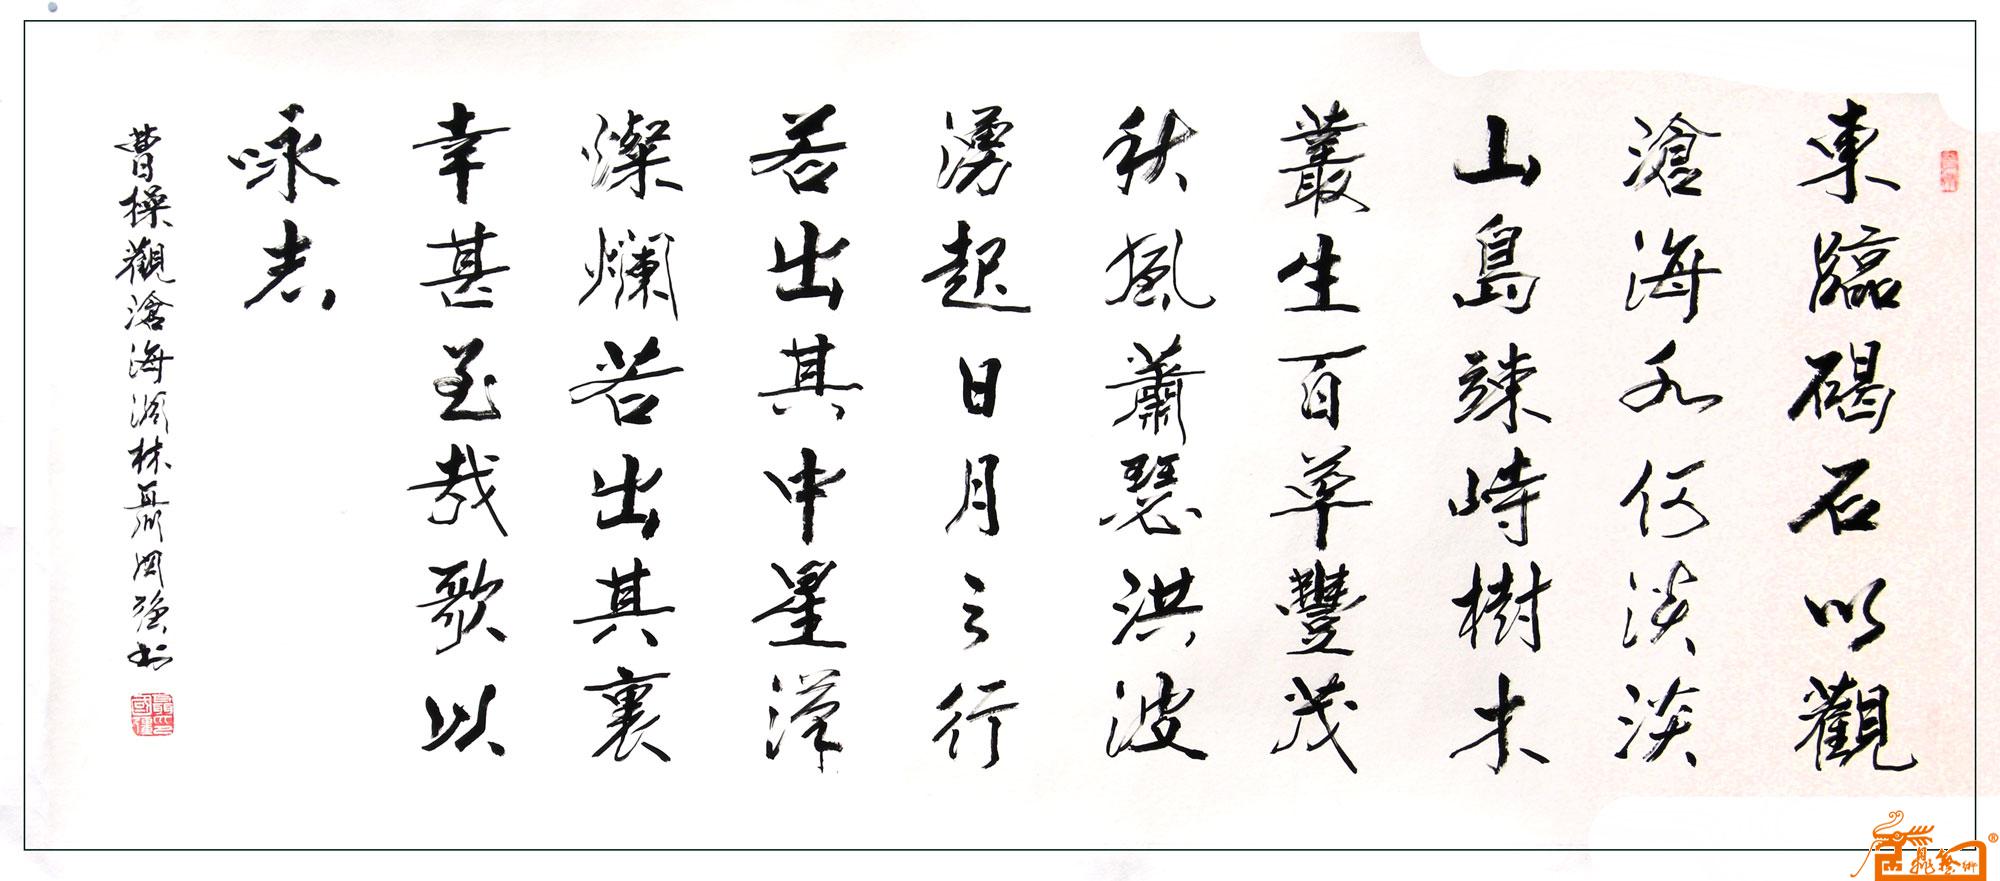 東臨碣石以觀
滄海水何淡淡
山島竦峙樹木
叢生百草豐茂
秋風蕭瑟洪波
湧起日月之行
若出其中星漢
燦爛若出其裏
幸甚至哉歌以
詠志
曹操觀滄海涿林聶國強書